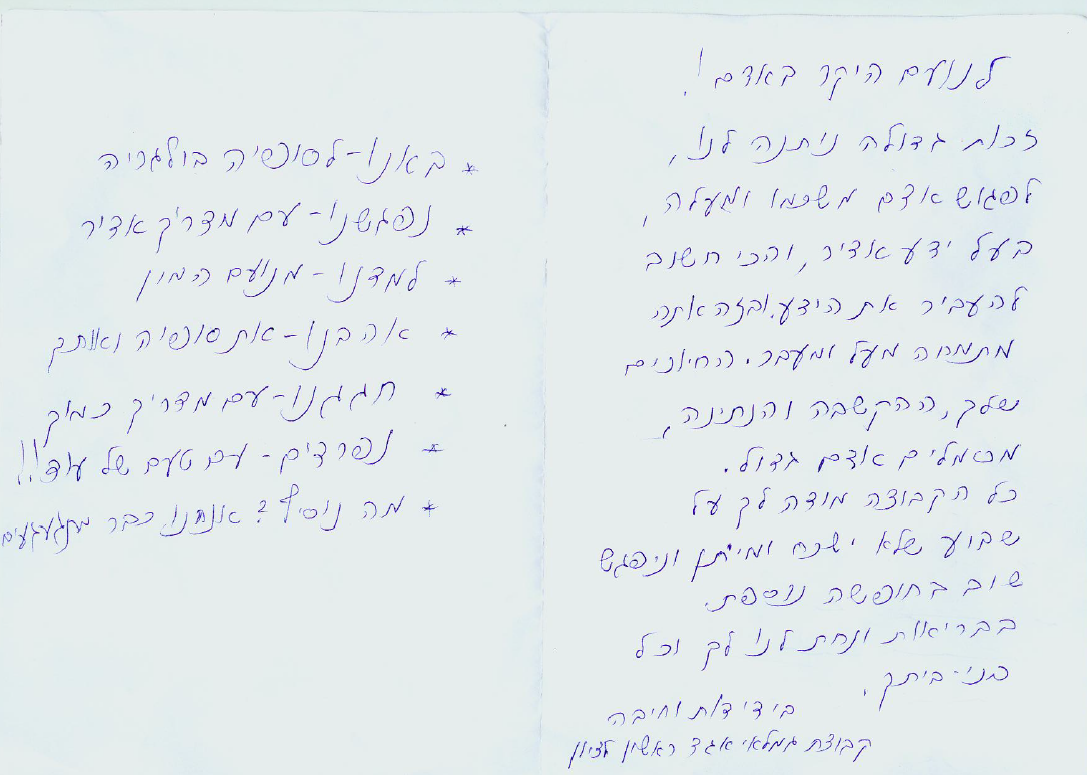 לנועם היקר באדם!
זכות גדולה ניתנה לנו,
לפגוש אדם משכמו ומעלה,
בעל ידע אדיר, והכי חשוב
להעביר את הידע. ובזה אתה
מתמחה מעל ומעבר. החיוכים
שלך, ההקשבה והנתינה,
מכמלים אדם גדול.
כל הקבוצה מודה לך על
שבוע שלא ישכח ומי יתן וניפגש
שוב בחופשה נוספת.
בבריאות ונחת לנו לך וכל
בני-ביתך.
בידידות וחיבה
קבוצת גמלאי אגד ראשון לציון
* באנו - לסופיה בולגריה
* נפגשנו - עם מדריך אדיר
* למדנו - מנועם המון
* אהבנו - את סופיה ואותך
* חגגנו - עם מדריך כמוך
* נפרדים - עם טעם של עוד!!
* מה נוסיף? אנחנו כבר מתגעגעים